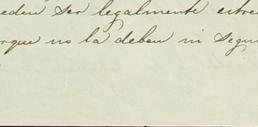 eden ser legalmente estre
rque no la deben ni segui